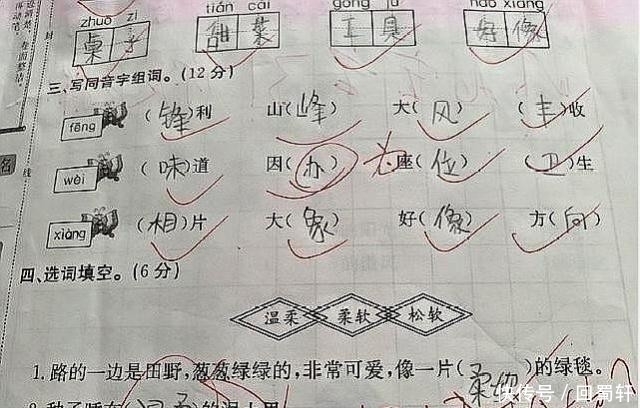 zhuō zi tián cài gōng jù hǎo xiàng
桌子 甜菜 工具 好像
三、写同音字组词。(12分)
fēng (锋)利 山(峰) 大(风) (丰)收
wèi (味)道 因(办) 为 座(位) (卫)生
xiàng (相)片 大(象) 好(像) 方(向)
四、选词填空。(6分)
温柔 柔软 松软
1. 路的一边是田野,葱葱绿绿的,非常可爱,像一片(柔软)的绿毯。
快传号/回蜀轩